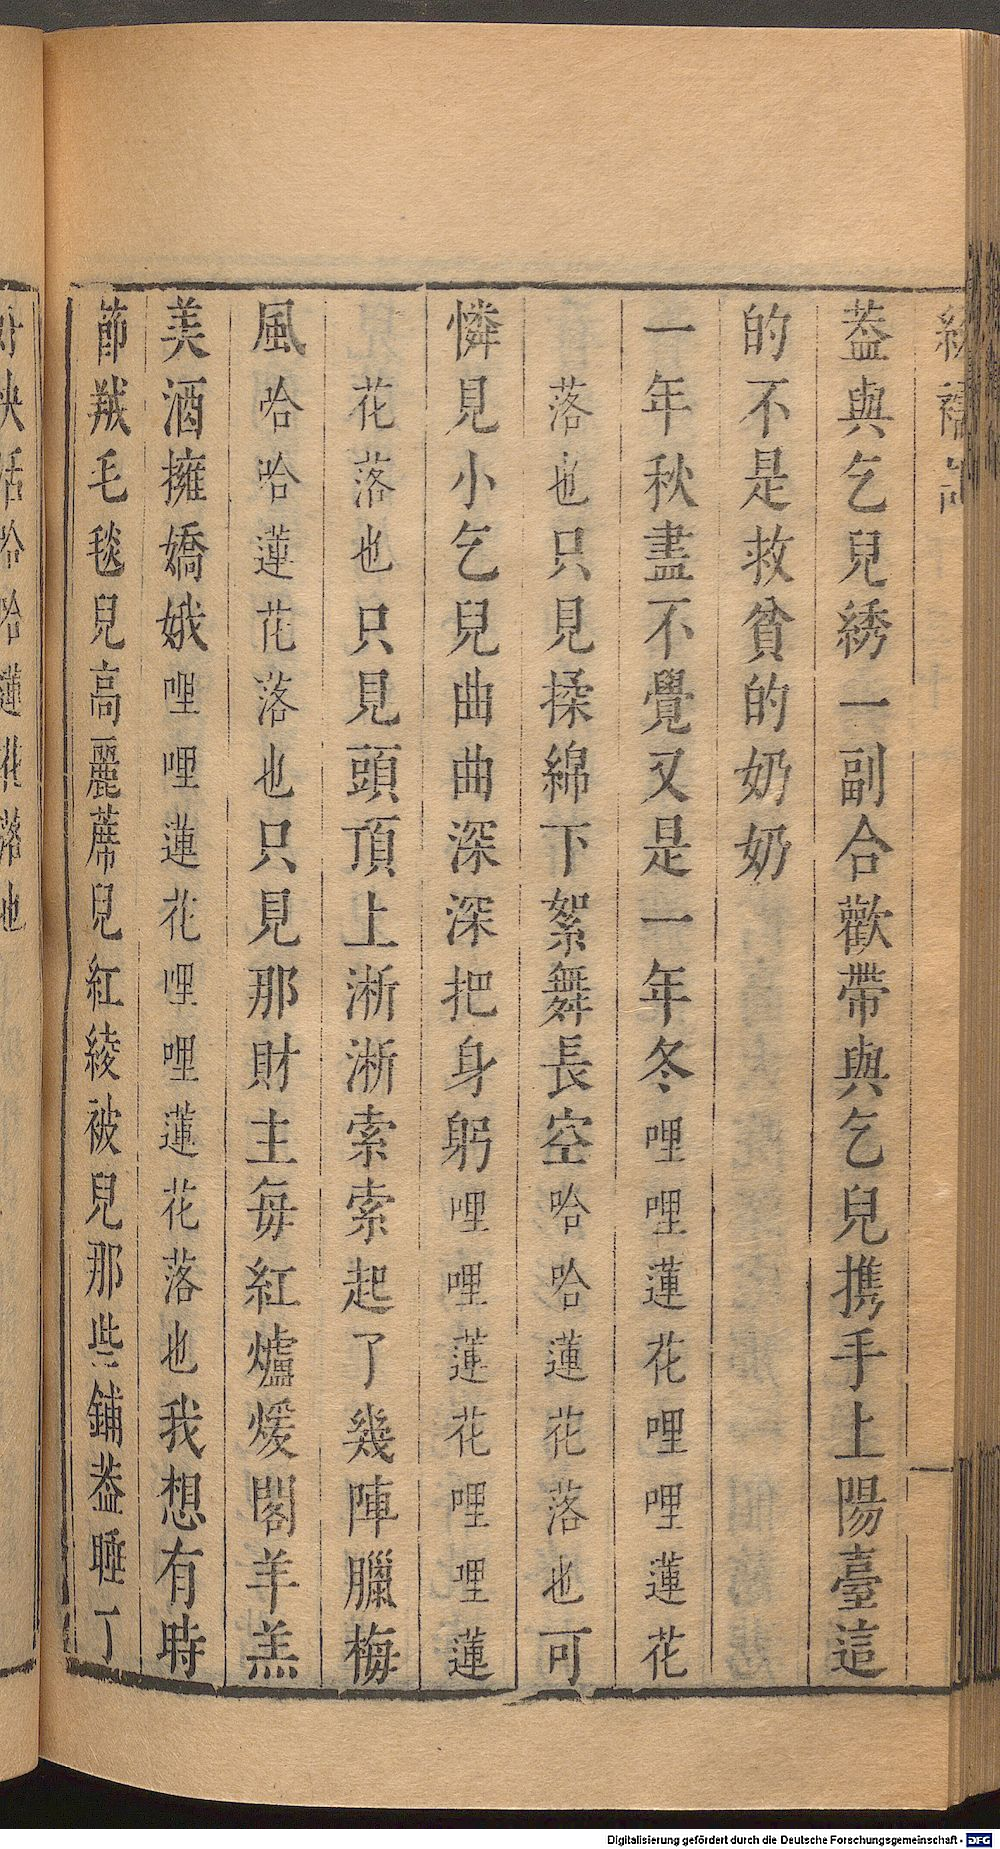 蓋與乞兒綉一副合歡帶與乞兒携手上陽臺這
的不是救貧的奶奶
一年秋盡不覺又是一年冬哩哩蓮花哩哩蓮花
落也只見揉綿下絮舞長空哈哈蓮花落也可
憐見小乞兒曲曲深深把身躬哩哩蓮花哩哩蓮
花落也只見頭頂上淅淅索索起了幾陣臘梅
風哈哈蓮花落也只見那財主每紅爐煖閣羊羔
美酒擁嬌娥哩哩蓮花哩哩蓮花落也我想有時
節羢毛毯兒高麗蓆兒紅綾被兒那些鋪葢睡了
活哈哈蓮花落也
Digitalisierung gefördert durch die Deutsche Forschungsgemeinschaft - DFG